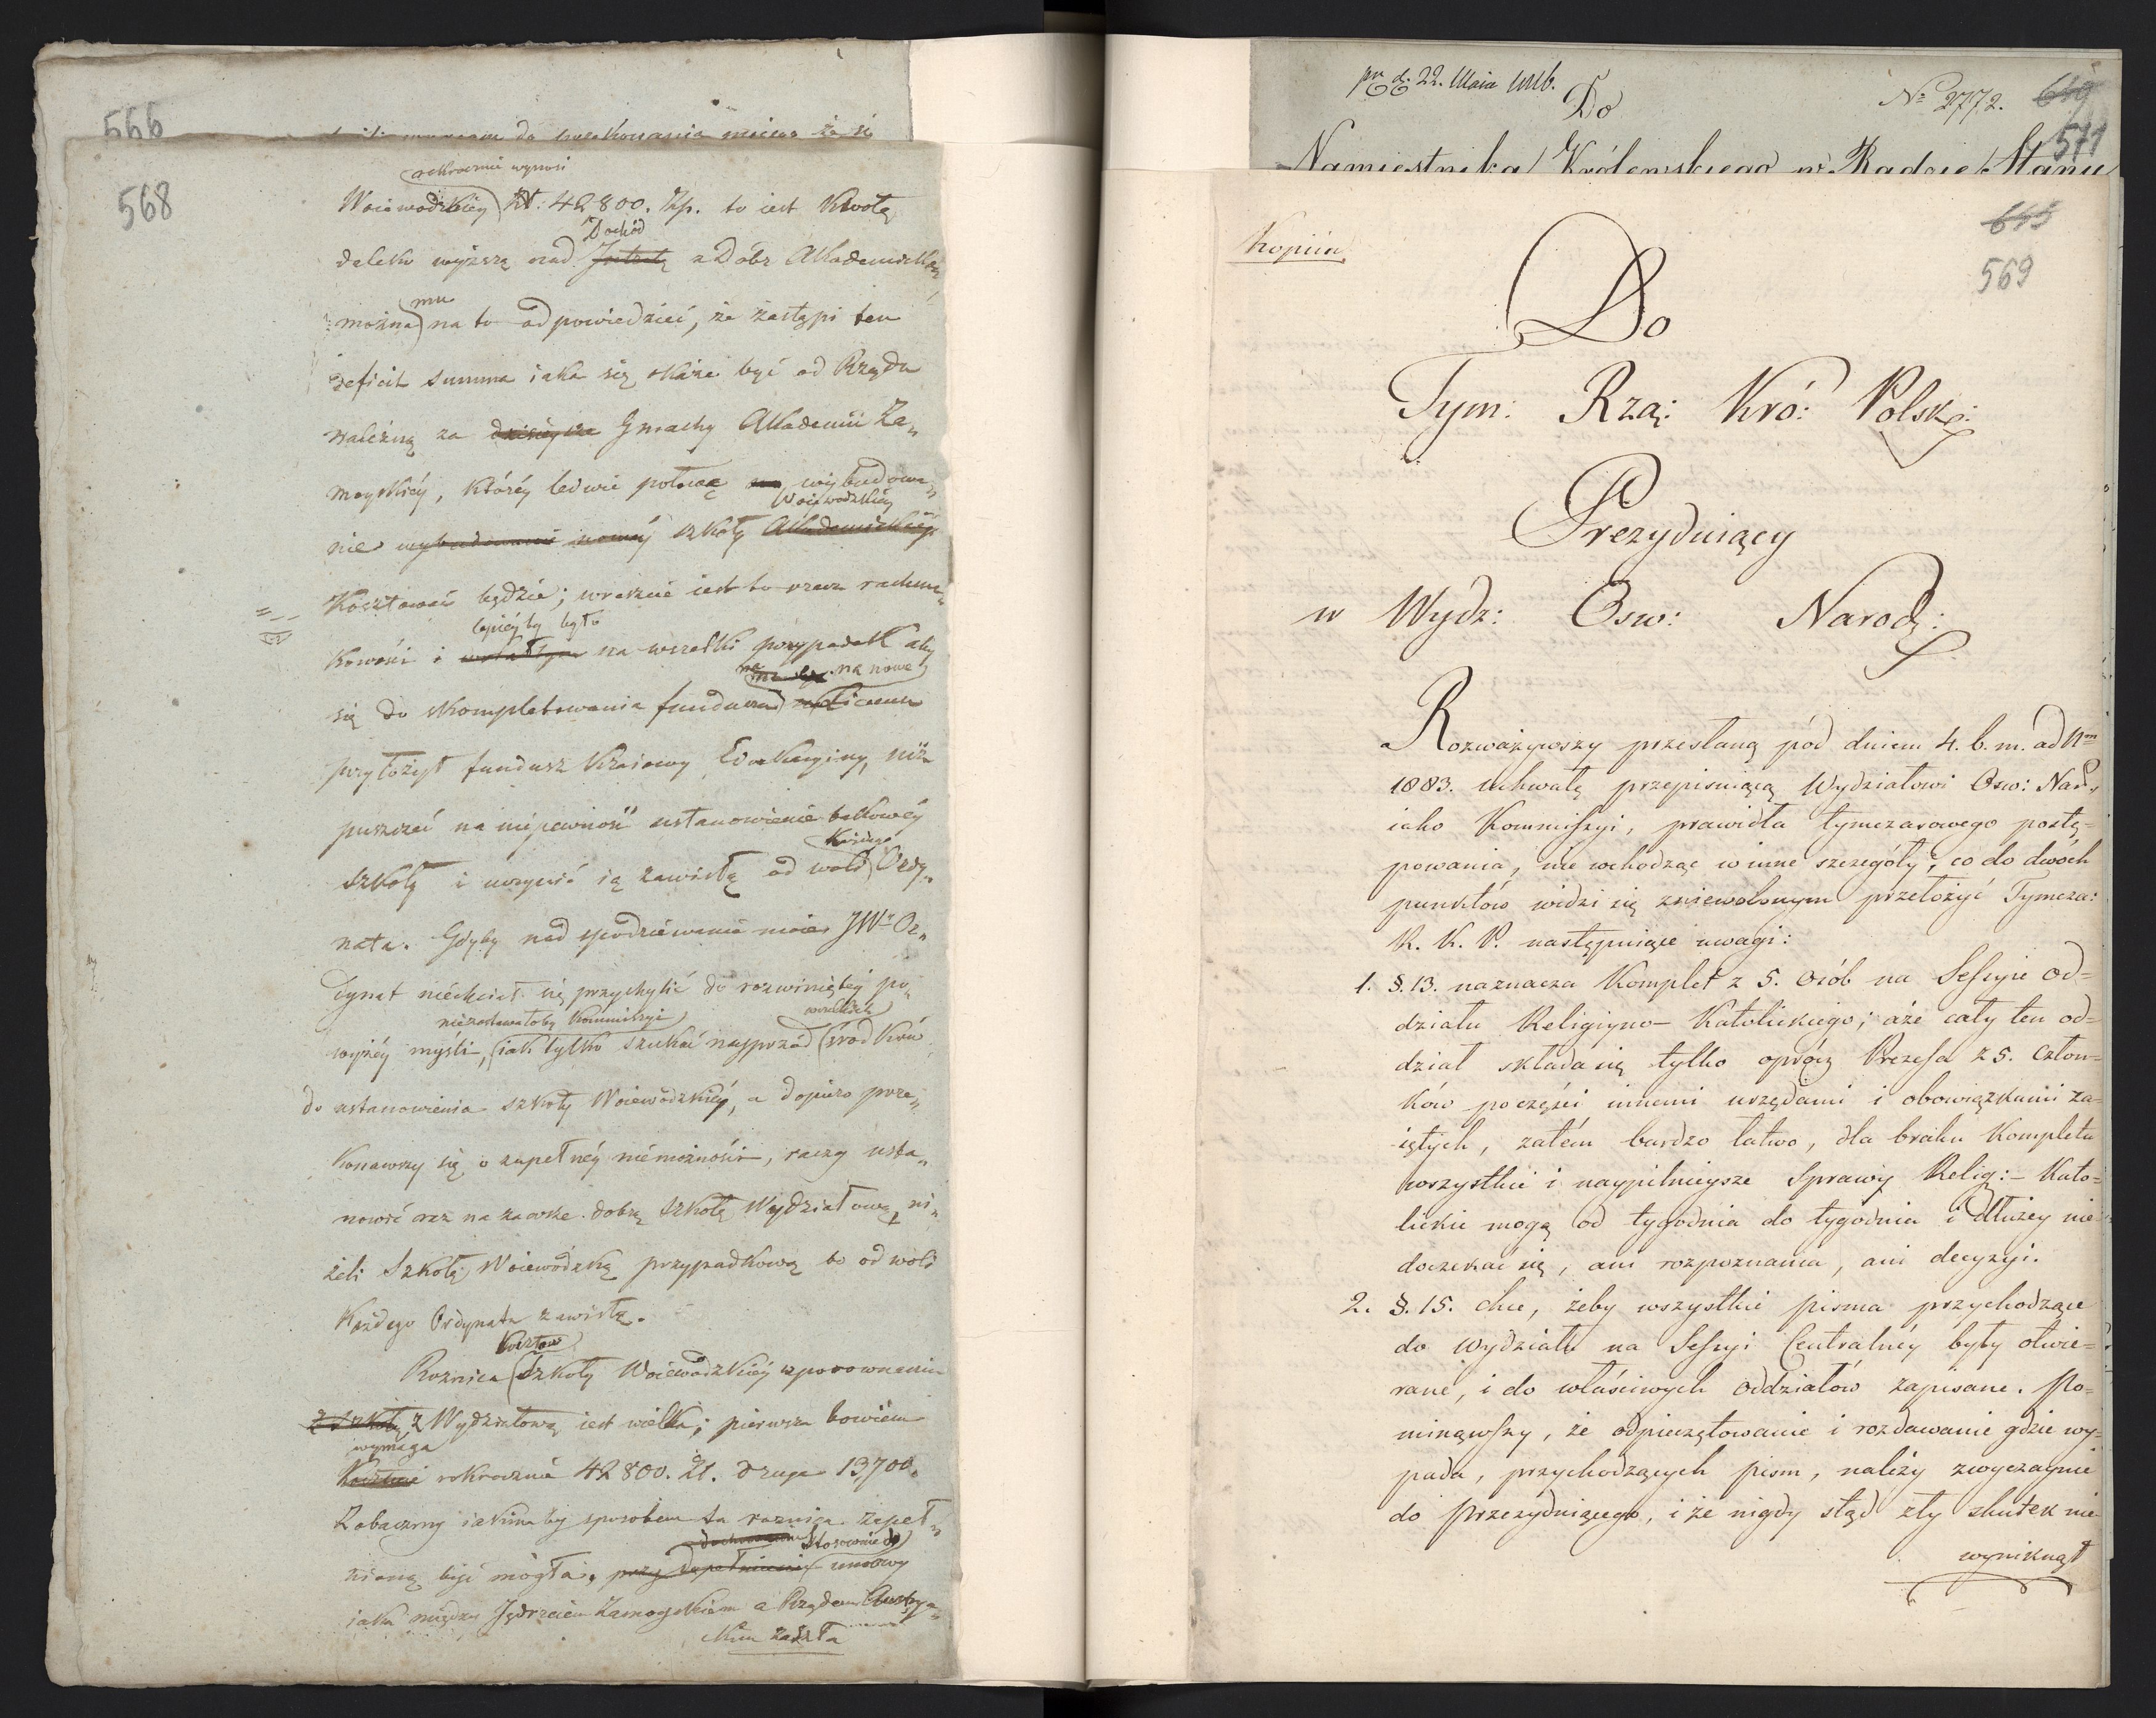 566
568
rokrocznie wynosi
Woiewodzkiéy Zł: 42800. Zp. to iest Kwotę
Dochód
daleko wyższą nad Intratę z Dóbr Akademickich,
mu
można na to odpowiedzieć, że zastąpi ten
deficit summa iaka się okáże być od Rządu
należną za dzisieysze Gmachy Akademii Za„
moyskiéy, któréy ledwie połowę wybudowa„
Woiewodzkiéy
nie wybudowanie nowéy szkoły Akademickiéy
Kosztować będzie; wreszcie iest to rzecz rachun„
lepiéy by było
kowości i na wszelki przypadek aby
na nowe
się do skompletowania funduszu
przyłożył fundusz Kraiowy Edukacyiny, niż
puszczać na niepewność ustanowienie takowéy
Każdego
szkoły i uczynić ią zawisłą od woli Ordy„
nata. Gdyby nad spodziéwanie moie JWº Or„
dynat niechciał się przychylić do rozwiniętéy po„
niezostawałoby Kommissyi
wyżéy myśli, iak tylko szukać nayprzód środków
do ustanowienia szkoły Woiewódzkiéy, a dopiero prze„
konawszy się o zupełnéy niemożności, raczy usta„
nowić raz na zawsze dobrą szkołę Wydziałową, ni„
żeli Szkołę Woiewódzką przypadkową bo od woli
Każdego Ordynata zawisłą.
Kosztów
Roznica Szkoły Woiewodzkiéy w porownaniu
z szkołą z Wydziałową iest wielka; pierwsza bowiém
wymaga
Kosztuie rokrocznie 42800. Zł. druga 13,700.
Zobaczmy iakimby sposobem ta roznica zapeł„
Stosownie do
nioną być mogła, przy dopełnieniu umowy
iaka między Jędrzeiem Zamoyskiem a Rządem Austrya„
ckim zaszła
pr d. 22. Maia 1816.
Nº 2772.
619
571
Do
Namiestnika Królewskiego w Radzie Stanu
Kopiia
615
569
Do
Tym: Rzą: Kró: Polsk:
Prezyduiący
w Wydz: Osw: Narod:
Rozważywszy przesłaną pód dniem 4. b. m. ad Nm
1883. uchwałę przepisuiącą Wydziałowi Osw: Nar:
iako Kommissyi, prawidła tymczasowego postę=
powania, nie wchodząc w inne szczegóły, co do dwóch
punktów widzi się zniewolonym przełożyć Tymcza:
R. K. P. następuiące uwagi:
1. §. 13. naznacza Komplet z 5. Osób na Sessyie Od=
działu Religiyno-Katolickiego; aże cały ten od=
dział składa się tylko oprócz Prezesa z 5. Człon=
ków poczęści innemi urzędami i obowiązkami za=
iętych, zatém bardzo łatwo, dla braku Kompletu
wszystkie i naypilnieysze Sprawy Relig:-Kato=
lickie mogą od tygodnia do tygodnia i dłużéy nie
doczekać się, ani rozpoznania, ani decyzyi.
2. §. 15. chce, żeby wszystkie pisma przychodzące
do Wydziału na Sessyi Centralnéy były otwie=
rane, i do właściwych oddziałów zapisane. Po=
minąwszy, że odpieczętowanie i rozdawanie gdzie wy=
pada, przychodzących pism, należy zwyczaynie
do przezyduiącego, i że nigdy stąd zły skutek nie
wyniknął